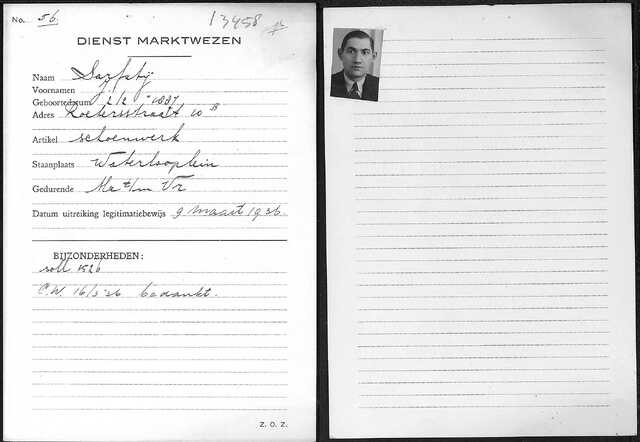 No. 56.
13458
DIENST MARKTWEZEN
Naam Sarfatij
Voornamen J.
Geboortedatum 2/2 - 1887
Adres Roetersstraat 10 B
Artikel schoenwerk
Staanplaats Waterlooplein
Gedurende Ma t/m Vr
Datum uitreiking legitimatiebewijs 9 maart 1936.
BIJZONDERHEDEN:
soll. 1526
C.W. 16/3 '36 bedankt.
Z. O. Z.